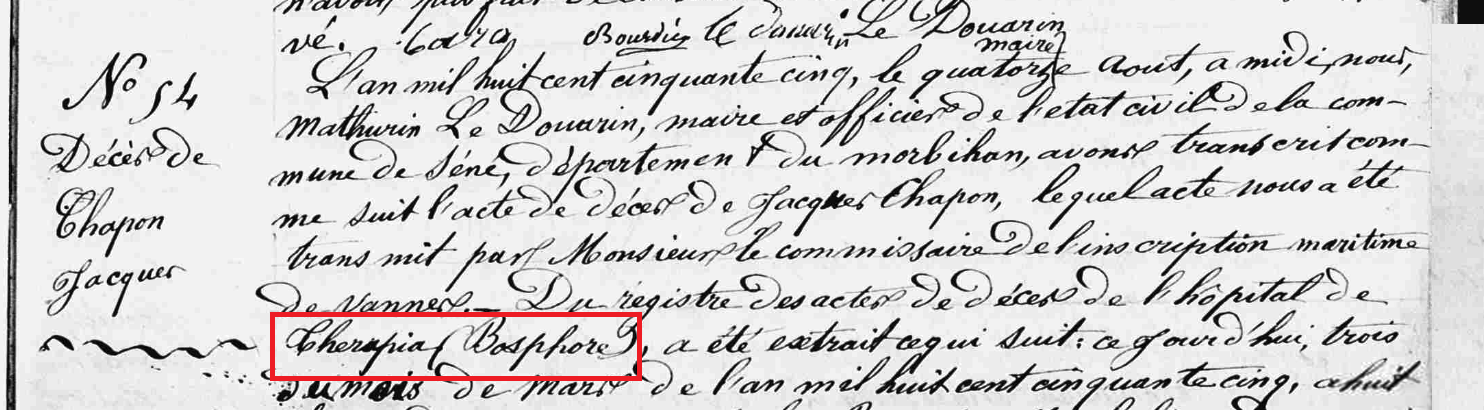 vé.
Bourdic le douarin Le Douarin
maire
L'an mil huit cent cinquante cinq, le quatorze aout, a midi, nous,
No 54
Mathurin Le Douarin, maire et officier de l'etat civil de la com-
Décès de
mune de Séné, département du morbihan, avons transcrit com-
Chapon
me suit l'acte de décès de Jacques Chapon, lequel acte nous a été
Jacques
transmit par Monsieur le commissaire de l'inscription maritime
de Vannes. — Du registre des actes de décès de l'hôpital de
Therapia (Bosphore), a été extrait ce qui suit: ce jourd'hui, trois
du mois de mars de l'an mil huit cent cinquante cinq, a huit